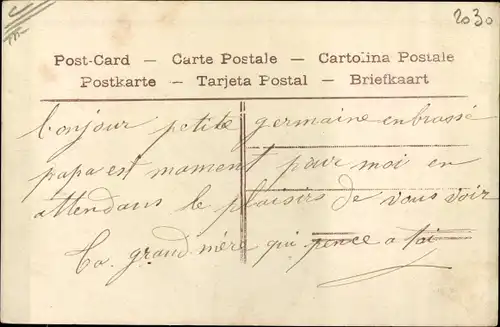 2030
Post-Card — Carte Postale — Cartolina Postale
Postkarte — Tarjeta Postal — Briefkaart
bonjour petite germaine enbrasse
papa est maman pour moi en
attendans le plaisirs de vous voir
ta grand mère qui pence a toi